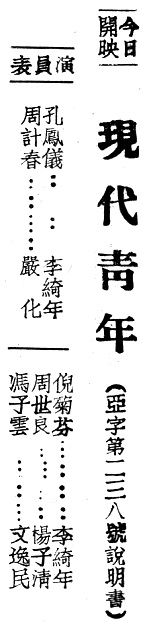 今日
開映
現代青年
(亞字第二三八號說明書)
演員表
孔鳳儀……李綺年
周計春……嚴化
倪菊芬……李綺年
周世良……楊子清
馮子雲……文逸民